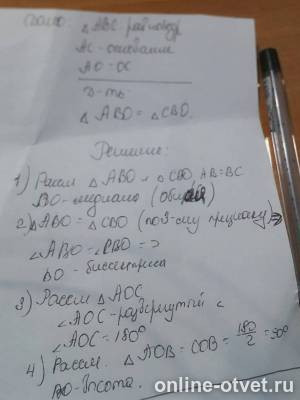 Дано:
△ABC-равнобедр
AC-основание
AO=OC
Д-ть
△ABO=△CBO.
Решение:
1) Рассм △ABO и △CBO, AB=BC
BO-медиана (общая)
2) △ABO=△CBO (по 3-ему признаку)=>
∠ABO=∠CBO=>
BO-биссектриса
3) Рассм △AOC
∠AOC-развернутый <
∠AOC=180°
4) Рассм. △AOB=COB=180/2=90°
BO-высота.
online-otvet.ru